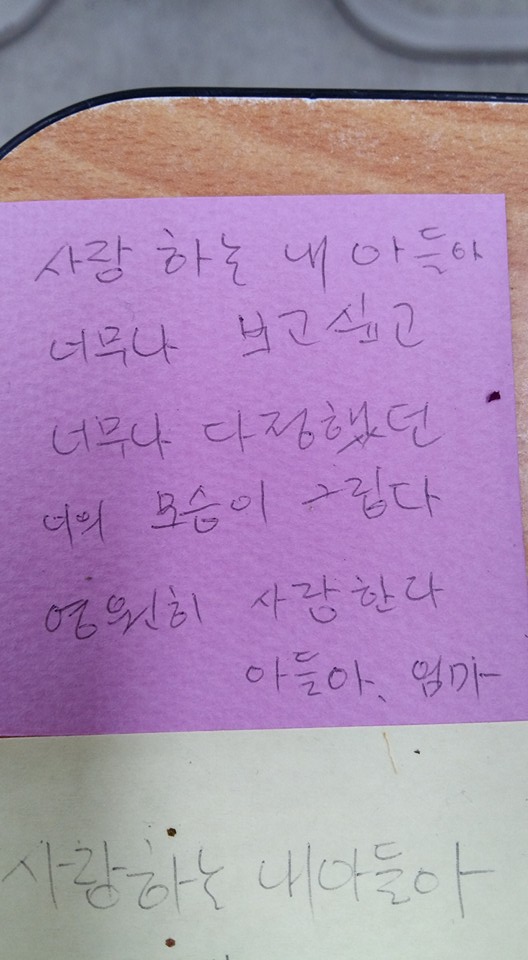 사랑 하는 내 아들아
너무나 보고싶고
너무나 다정했던
너의 모습이 그립다
영원히 사랑한다
아들아, 엄마
사랑하는 내아들아